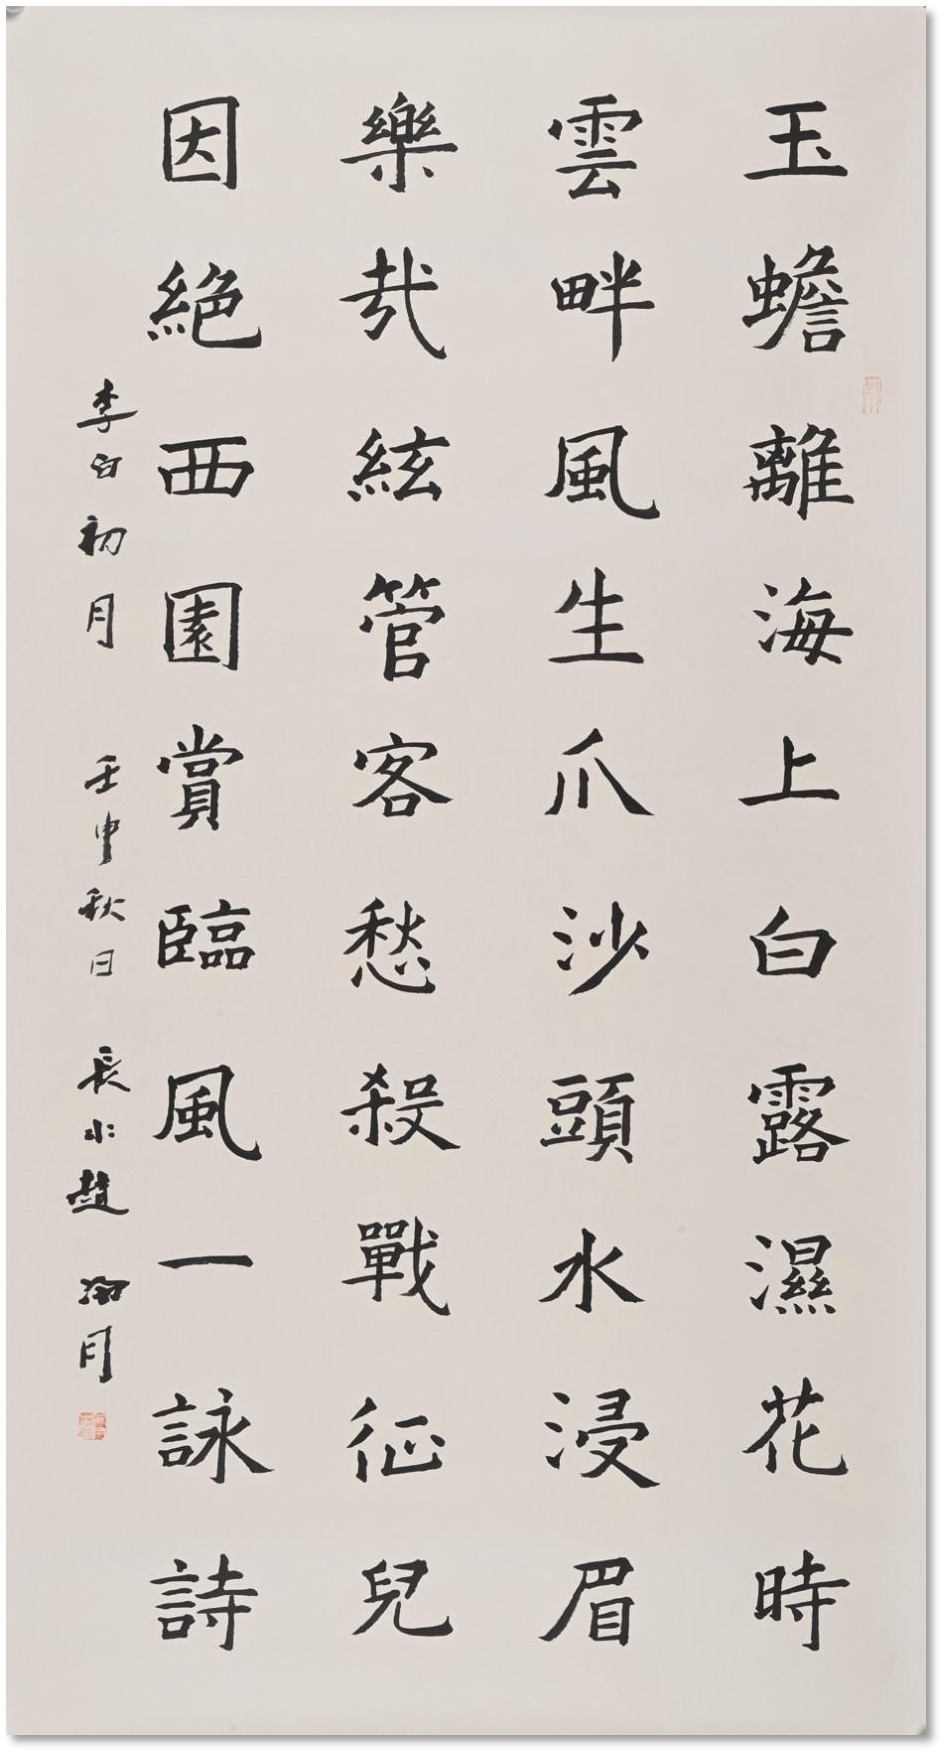 玉蟾離海上白露濕花時
雲畔風生爪沙頭水浸眉
樂哉絃管客愁殺戰征兒
因絕西園賞臨風一詠詩
李白初月 壬申秋日 長水趙冷月